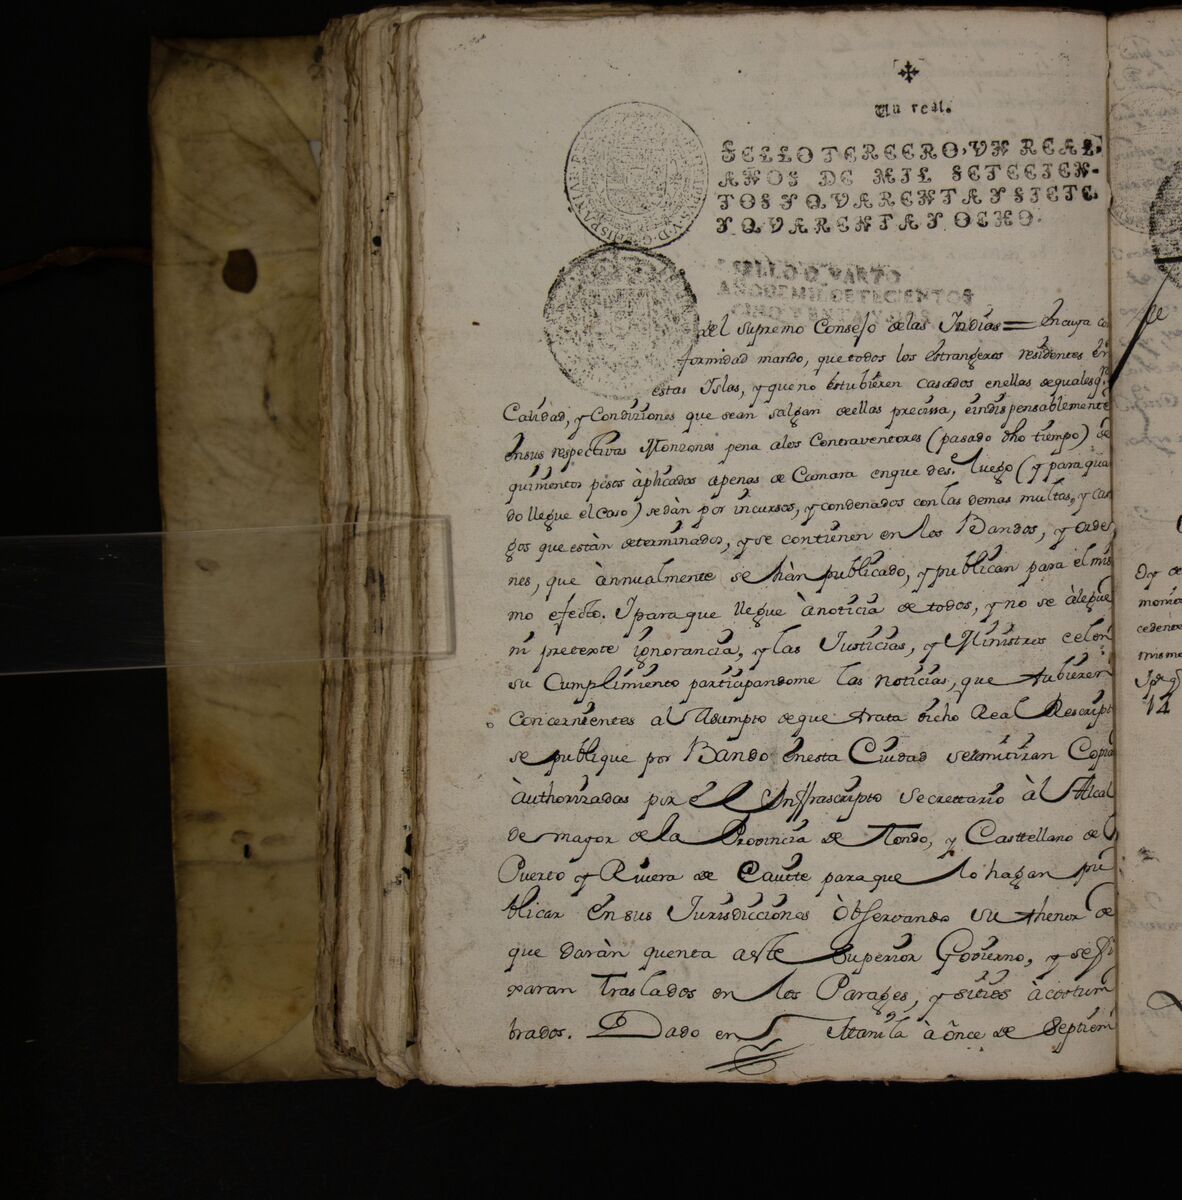 Un real.
SELLO TERCERO, VN REAL,
AÑOS DE MIL SETECIEN-
TOS Y QVARENTA Y SIETE
Y QVARENTA Y OCHO.
SELLO QVARTO
AÑO DE MIL SETECIENTOS
del Supremo Consejo delas Indias = en cuya con
formidad mando, que todos los estrangeros residentes en
estas Islas, y que no estubieren casados enellas dequalesq.ra
Calidad, y Condiziones que sean salgan deellas precissa, è indispensablemente
ensus respectivas Monzones pena alos Contraventores (pasado dho tiempo) de
quinientos pesos àplicados apenas de Camara enque des.e luego (y para quã
do llegue el Caso) se dàn por incursos, y condenados con las demas multas, y car
gos que estàn determinados, y se contienen en los Bandos, y orde
nes, que ànnualmente se hàn publicado, y publican para el mis
mo efecto. Y para que llegue à noticia de todos, y no se àlegue
ni pretexte ignorancia, y las Justicias, y Ministros celen
su Cumplimiento participandome las noticias, que tubieren
Concernientes al Asumpto de que trata dicho Real Rescripto
se publique por Bando enesta Ciudad se remitiran Copias
àuthorizadas por el Infrascripto Secrettario àl Alcal
de mayor de la Provincia de Tondo, y Casttellano del
Puerto y Rivera de Cavitte para que lo hagan pu
blicar en sus Jurisdicciones òbservando su thenor de
que daràn quenta aeste Superior Govierno, y se fi
xaran Traslados en los Parages, y sitios àcostum
brados. Dado en Manila à ônce de Septiem
14